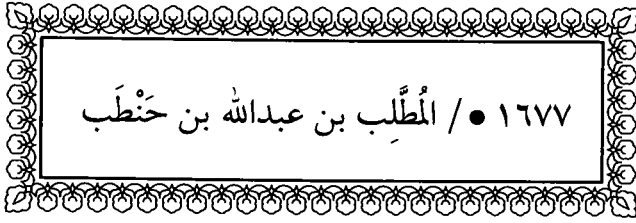 ١٦٧٧ • / المُطَّلِب بن عبدالله بن حَنْطَب